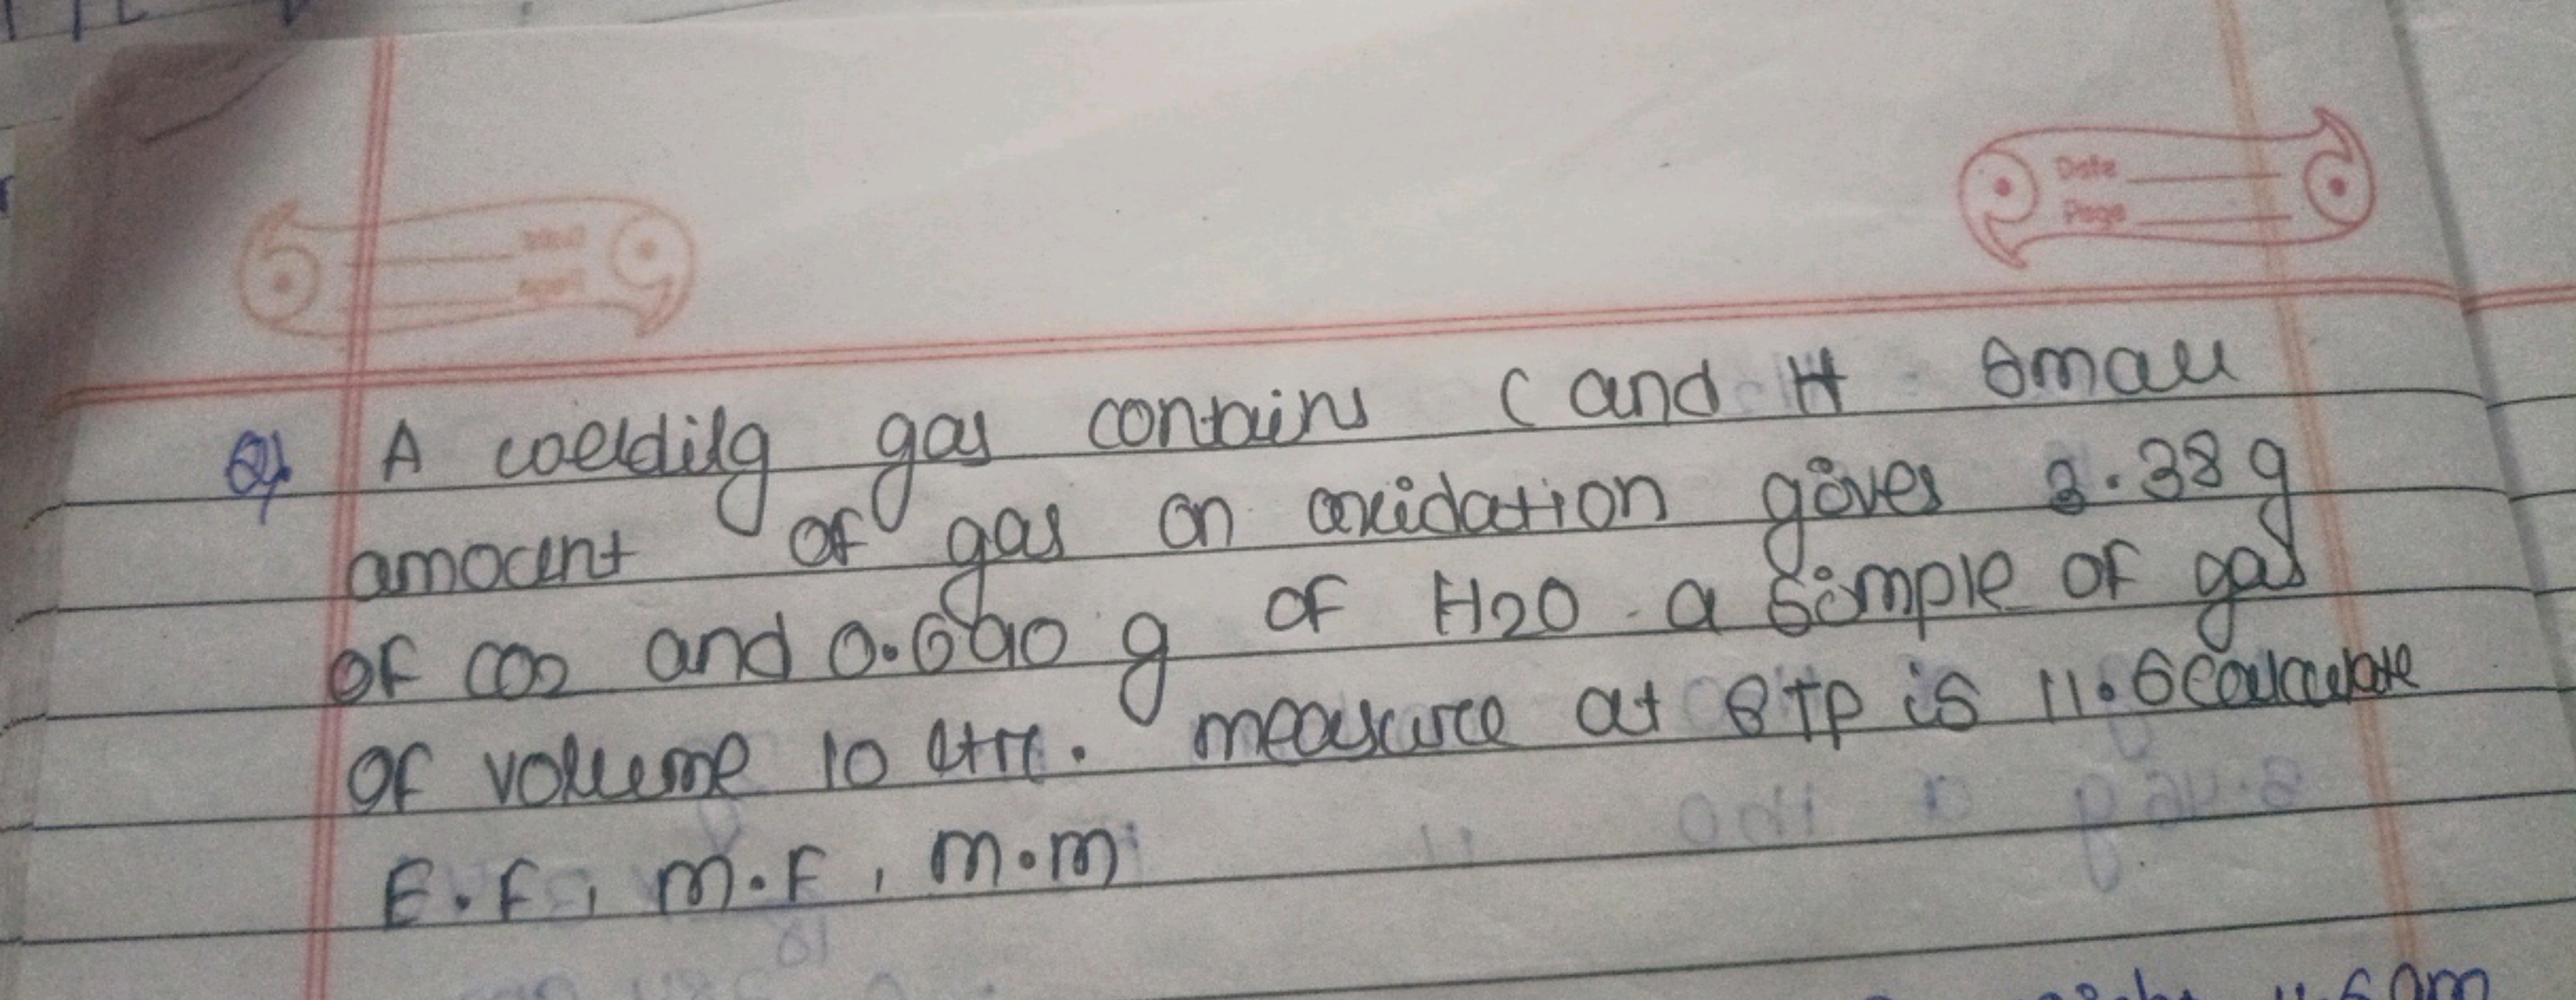 Date
Page
Q) A coeldilg gas contains C and H Small
amount of gas on oxidation gives 3.38 g
of CO2 and 0.690 g of H2O . a simple of gas
of volume 10 litr. measure at STP is 11.6 calculate
E.F, M.F, M.M